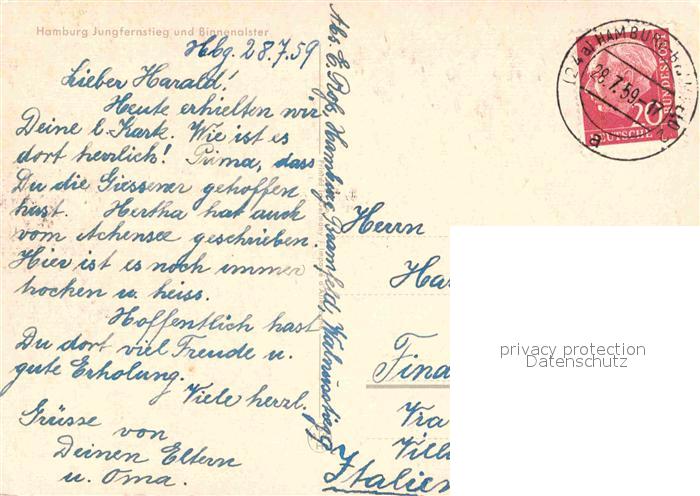 Hamburg Jungfernstieg und Binnenalster
Hbg. 28.7.59
Lieber Harald!
Heute erhielten wir
Deine l. Karte. Wie ist es
dort herrlich! Prima, dass
Du die Giessener getroffen
hast. Hertha hat auch
vom Achensee geschrieben.
Hier ist es noch immer
trocken u. heiss.
Hoffentlich hast
Du dort viel Freude u.
gute Erholung.
Viele herzl.
Grüsse von
Deinen Eltern
u. Oma.
Abs. E. Hamburg Bramfeld, Walnussstieg
Herrn
Ha
Fina
Via
Villa
Italien
(24a) HAMBURG
28.7.59
20
DEUTSCHE BUNDESPOST
privacy protection
Datenschutz